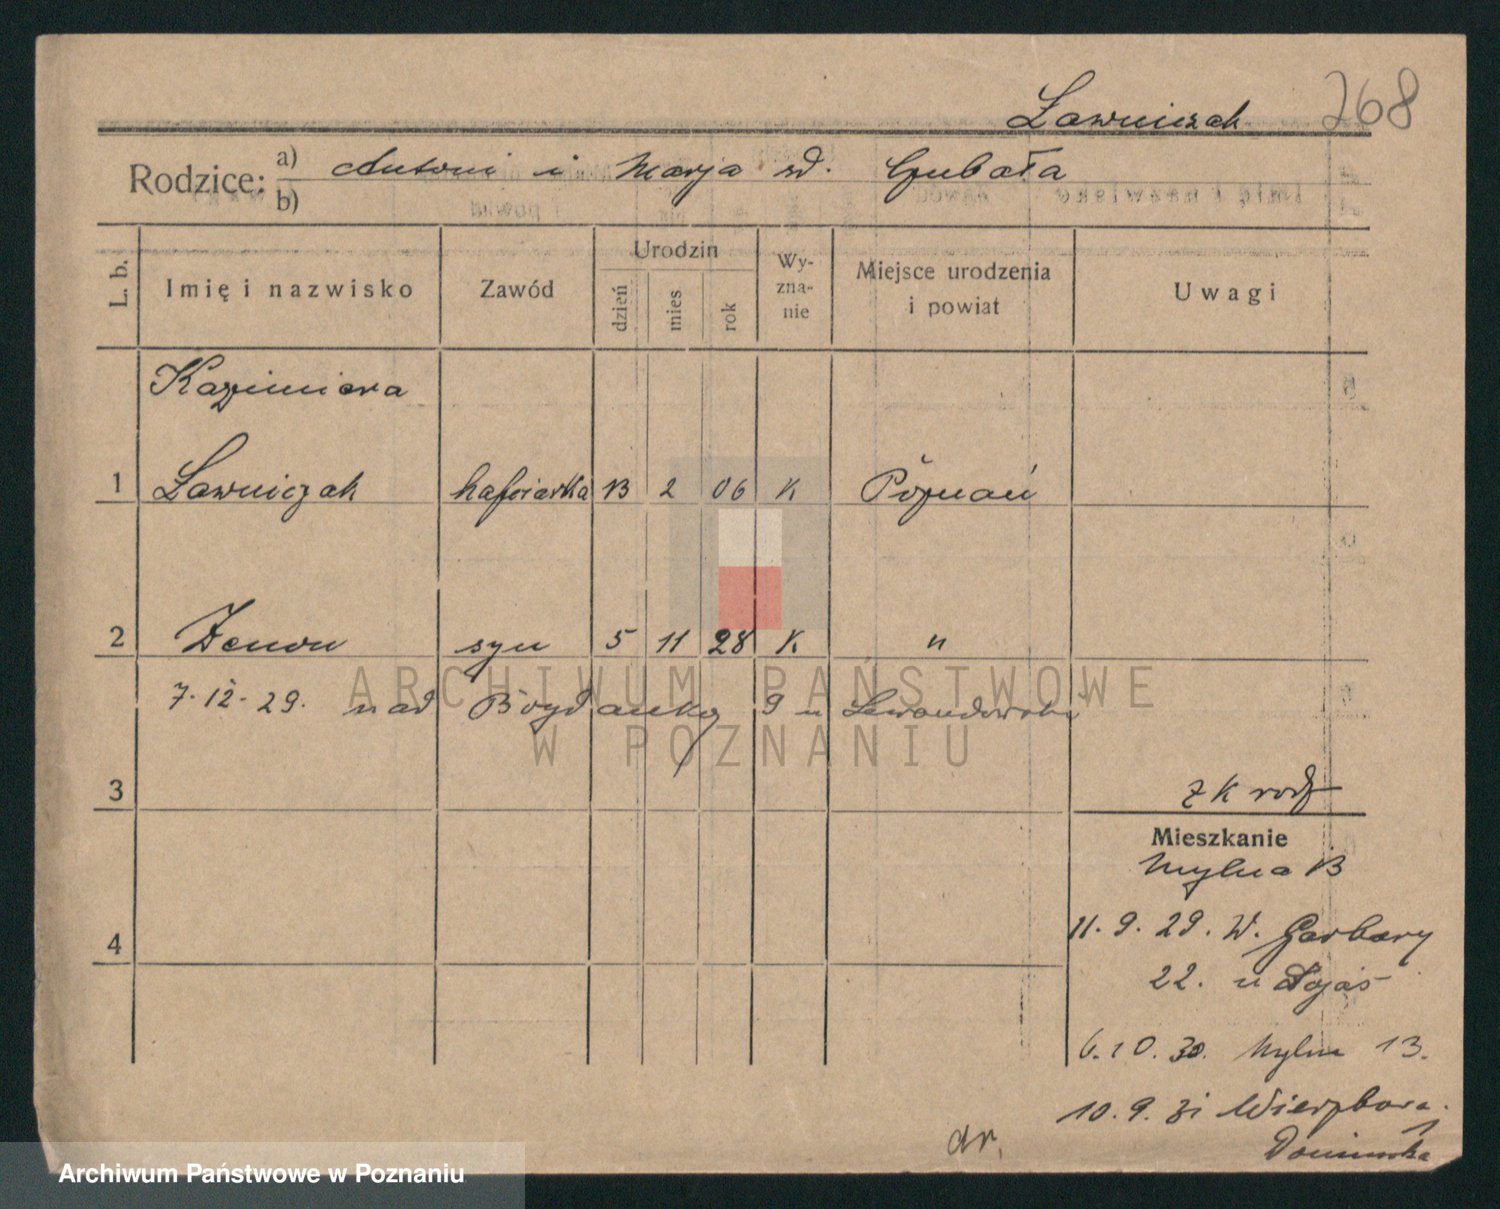 Ławniczak 268
Rodzice: a) Antoni i Marja zd.
b)
L. b.
Imię i nazwisko
Zawód
Urodzin
dzień
mies
rok
Wy-
zna-
nie
Miejsce urodzenia
i powiat
Uwagi
Kazimiera
1 Ławniczak hafciarka 13 2 06 K Poznań
2 Zenon syn 5 11 28 K "
7.12.29. nad Bogdanką 9 u Lewandowski
3
z K rodz
Mieszkanie
Mylna 13
4
11.9.29. W. Garbary
22. u
6.10.30. Mylna 13.
10.9.31 Wierzbowa 1
dr.
ARCHIWUM PAŃSTWOWE
W POZNANIU
Archiwum Państwowe w Poznaniu